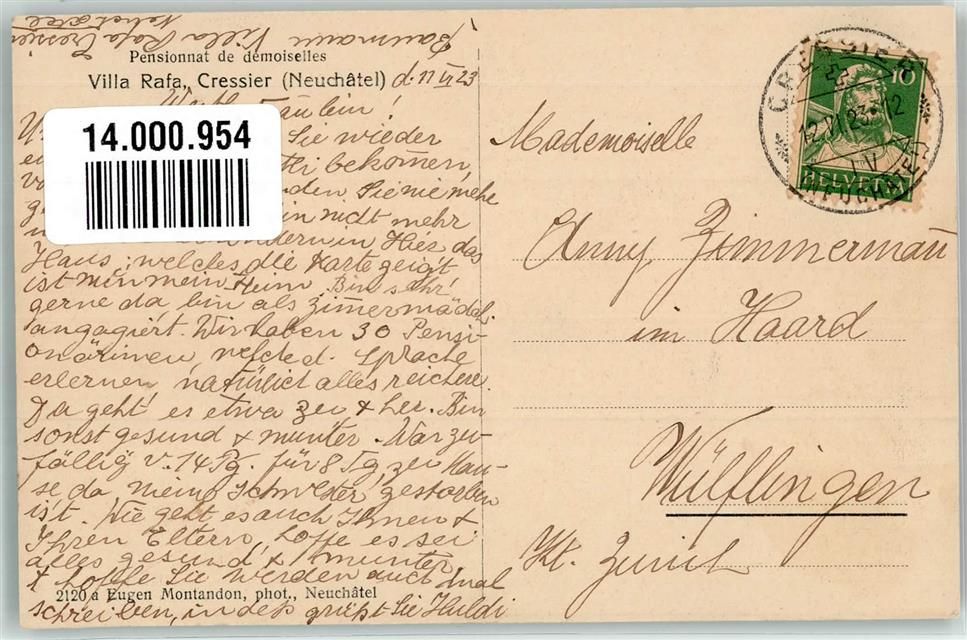 Baumann Villa Rafa Cressier
Pensionnat de demoiselles
Villa Rafa, Cressier (Neuchâtel) d. 11 VI 23
14.000.954
Sie wieder
bekomen,
Sie nie mehr
nicht mehr
in Hier das
Haus, welches die Karte zeigt
ist nun mein Heim. Bin sehr
gerne da bin als Zimermädch.
angagiert. Wir haben 30 Pensi-
onärinnen, welche d. Sprache
erlernen, natürlich alles reichere.
Da geht es etwa zu & her. Bin
sonst gesund & munter. War zu-
fällig v. 14 Tg. für 8 Tg zu Hau-
se da meine Schwester gestorben
ist. Wie geht es auch Ihnen &
Ihren Eltern, hoffe es sei
alles gesund & munter
& hoffe Sie werden auch mal
2120 a Eugen Montandon, phot., Neuchâtel
schreiben, in des grüßt Sie Huldi
CRESSIER
12.VI.23-12
(NEUCHATEL)
10
HELVETIA
Mademoiselle
Anny Zimmermann
im Haard
Wülflingen
Kt. Zürich